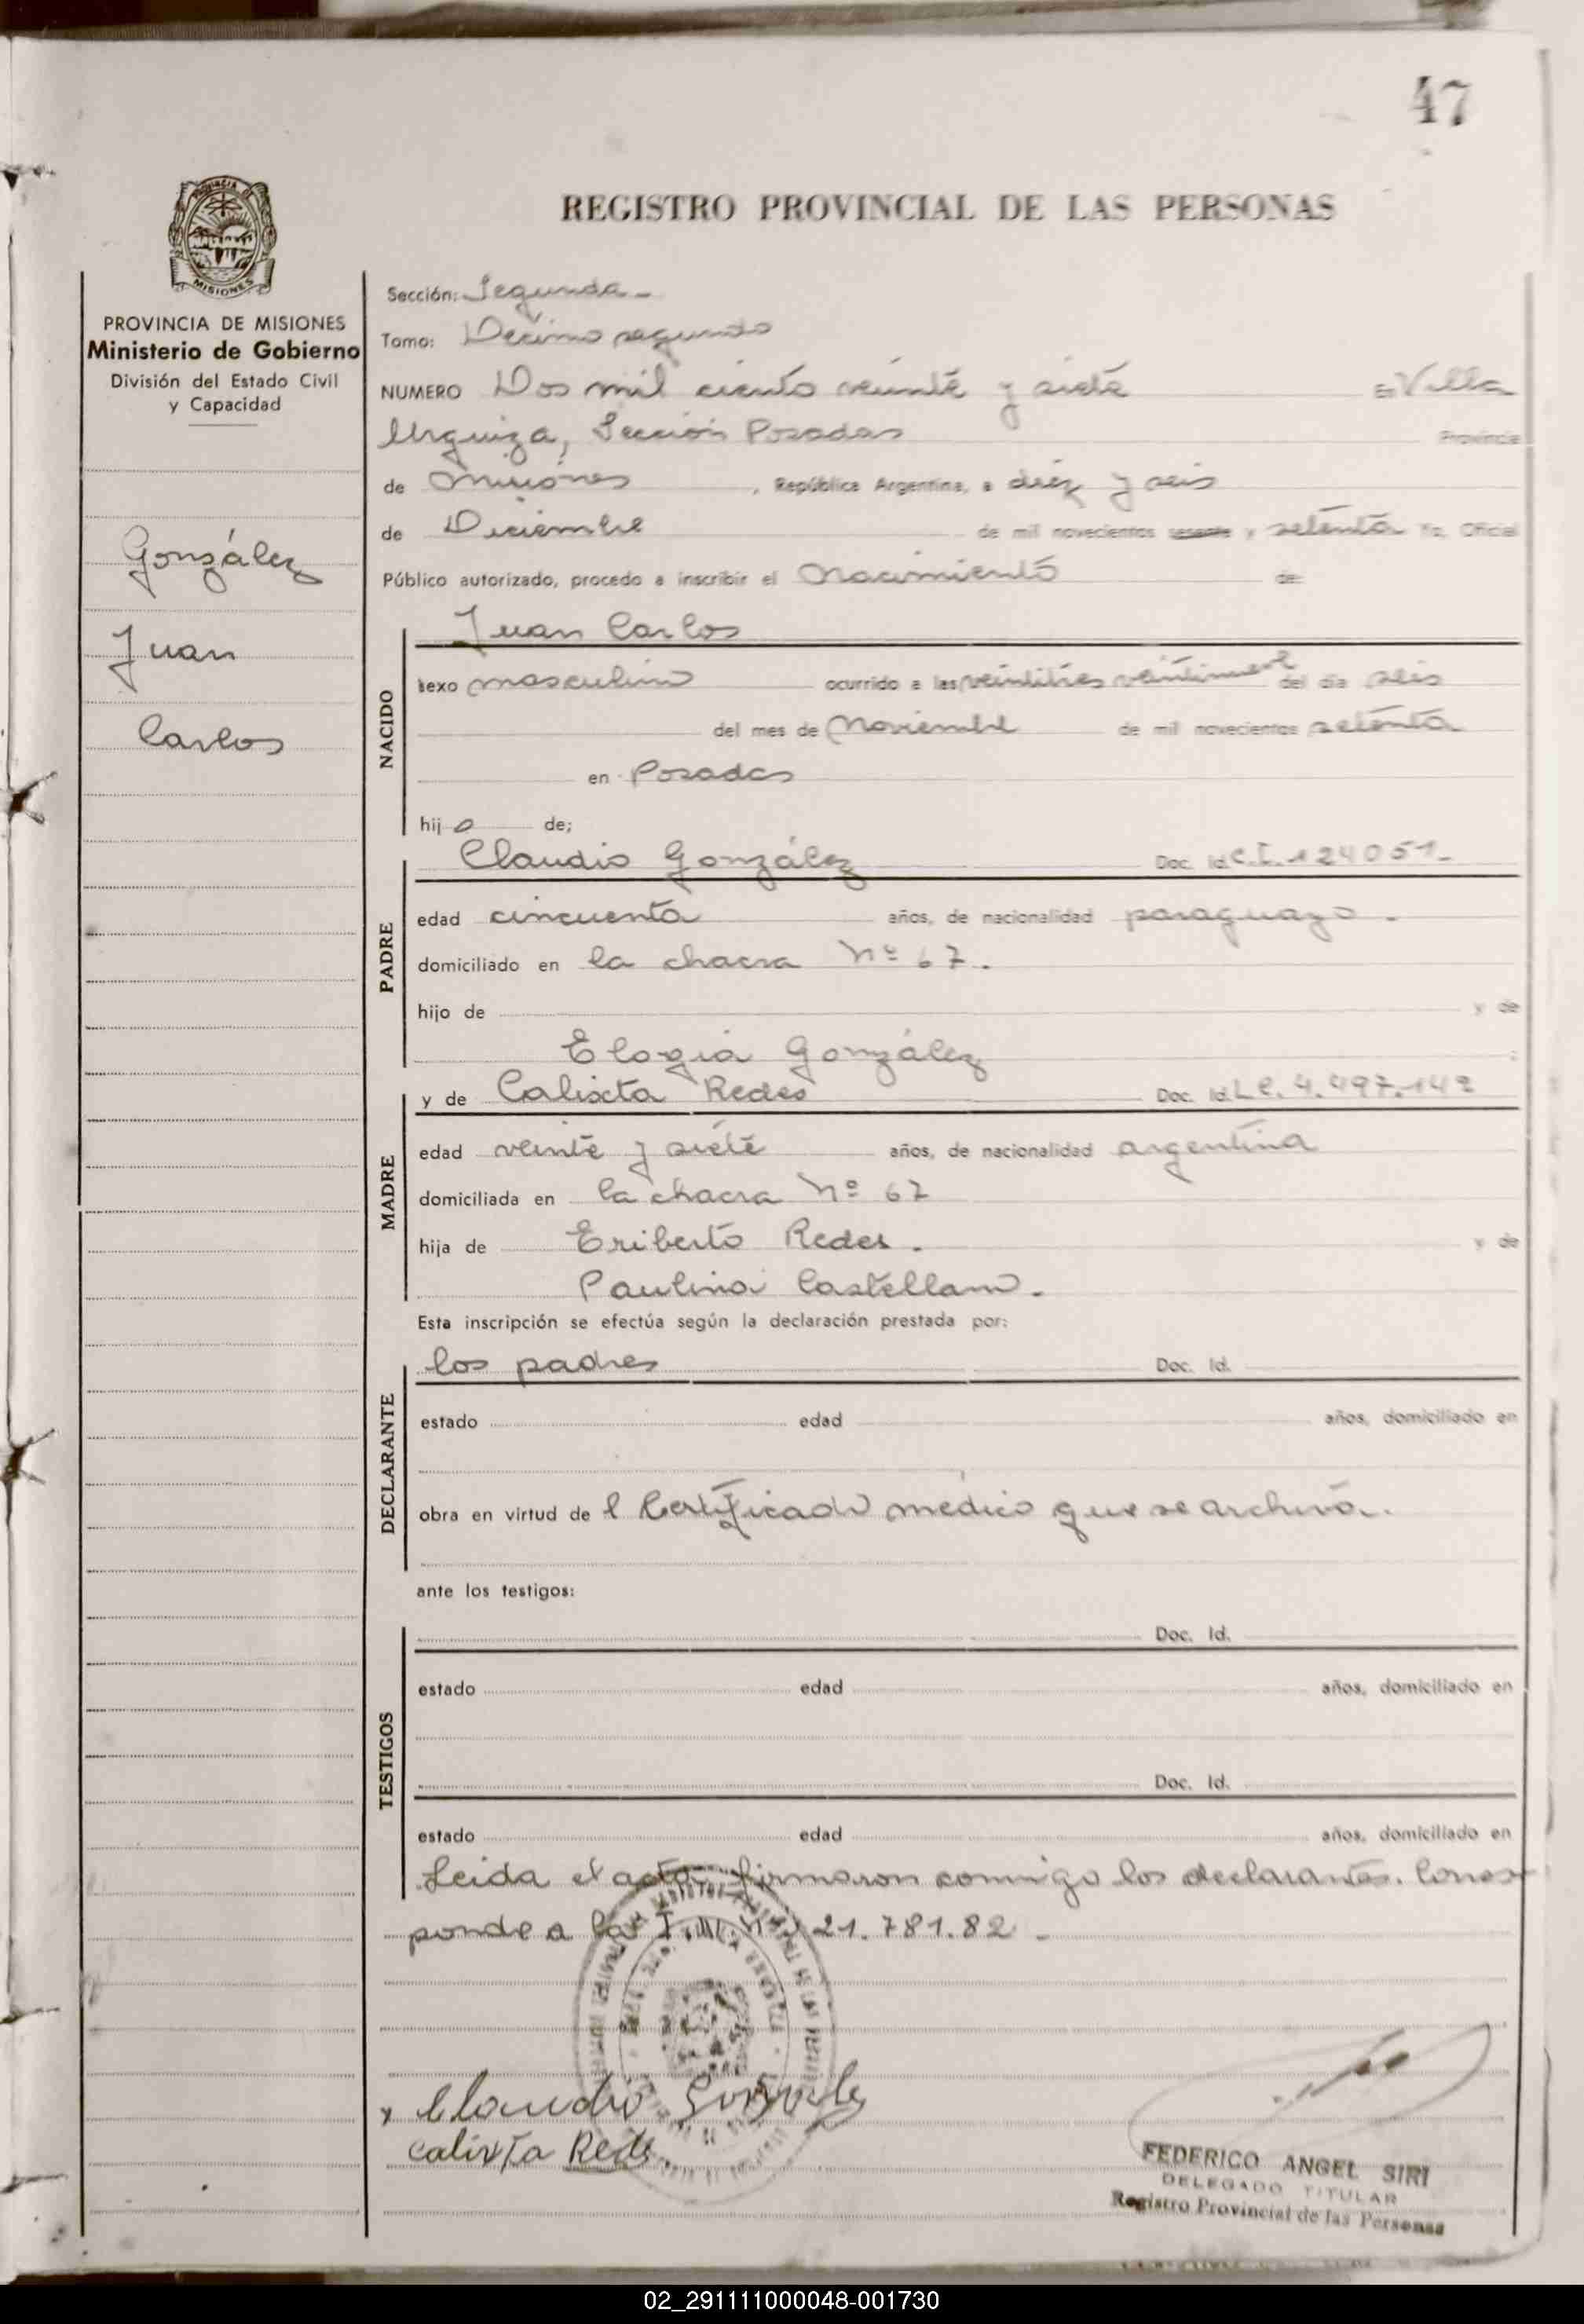 47
REGISTRO PROVINCIAL DE LAS PERSONAS
PROVINCIA DE MISIONES
MISIONES
PROVINCIA DE MISIONES
Ministerio de Gobierno
División del Estado Civil
y Capacidad
González
Juan
Carlos
Sección: Segunda -
Tomo: Décimo segundo
NUMERO Dos mil ciento veinte y siete En Villa
Urquiza, Sección Posadas Provincia
de Misiones, República Argentina, a diez y seis
de Diciembre de mil novecientos sesenta y setenta Yo, Oficial
Público autorizado, procedo a inscribir el Nacimiento de:
NACIDO
Juan Carlos
sexo masculino ocurrido a las veintitres veintinueve del día seis
del mes de Noviembre de mil novecientos setenta
en Posadas
hijo de;
PADRE
Claudio González Doc. Id. C.I. 124051-
edad cincuenta años, de nacionalidad paraguayo.
domiciliado en la chacra Nº 67.
hijo de y de
Elogia González
MADRE
y de Calixta Redes Doc. Id. L.C. 4.497.142
edad veinte y siete años, de nacionalidad argentina
domiciliada en la chacra Nº 67
hija de Eriberto Redes. y de
Paulina Castellano.
Esta inscripción se efectúa según la declaración prestada por:
DECLARANTE
los padres Doc. Id.
estado edad años, domiciliado en
obra en virtud de l Certificado médico que se archiva.
ante los testigos:
TESTIGOS
Doc. Id.
estado edad años, domiciliado en
Doc. Id.
estado edad años, domiciliado en
Leida el acta, firmaron conmigo los declarantes. Corres
ponde a la 21.781.82 -
Claudio Gonzalez
Calixta Redes.
FEDERICO ANGEL SIRI
DELEGADO TITULAR
Registro Provincial de las Personas
02_291111000048-001730